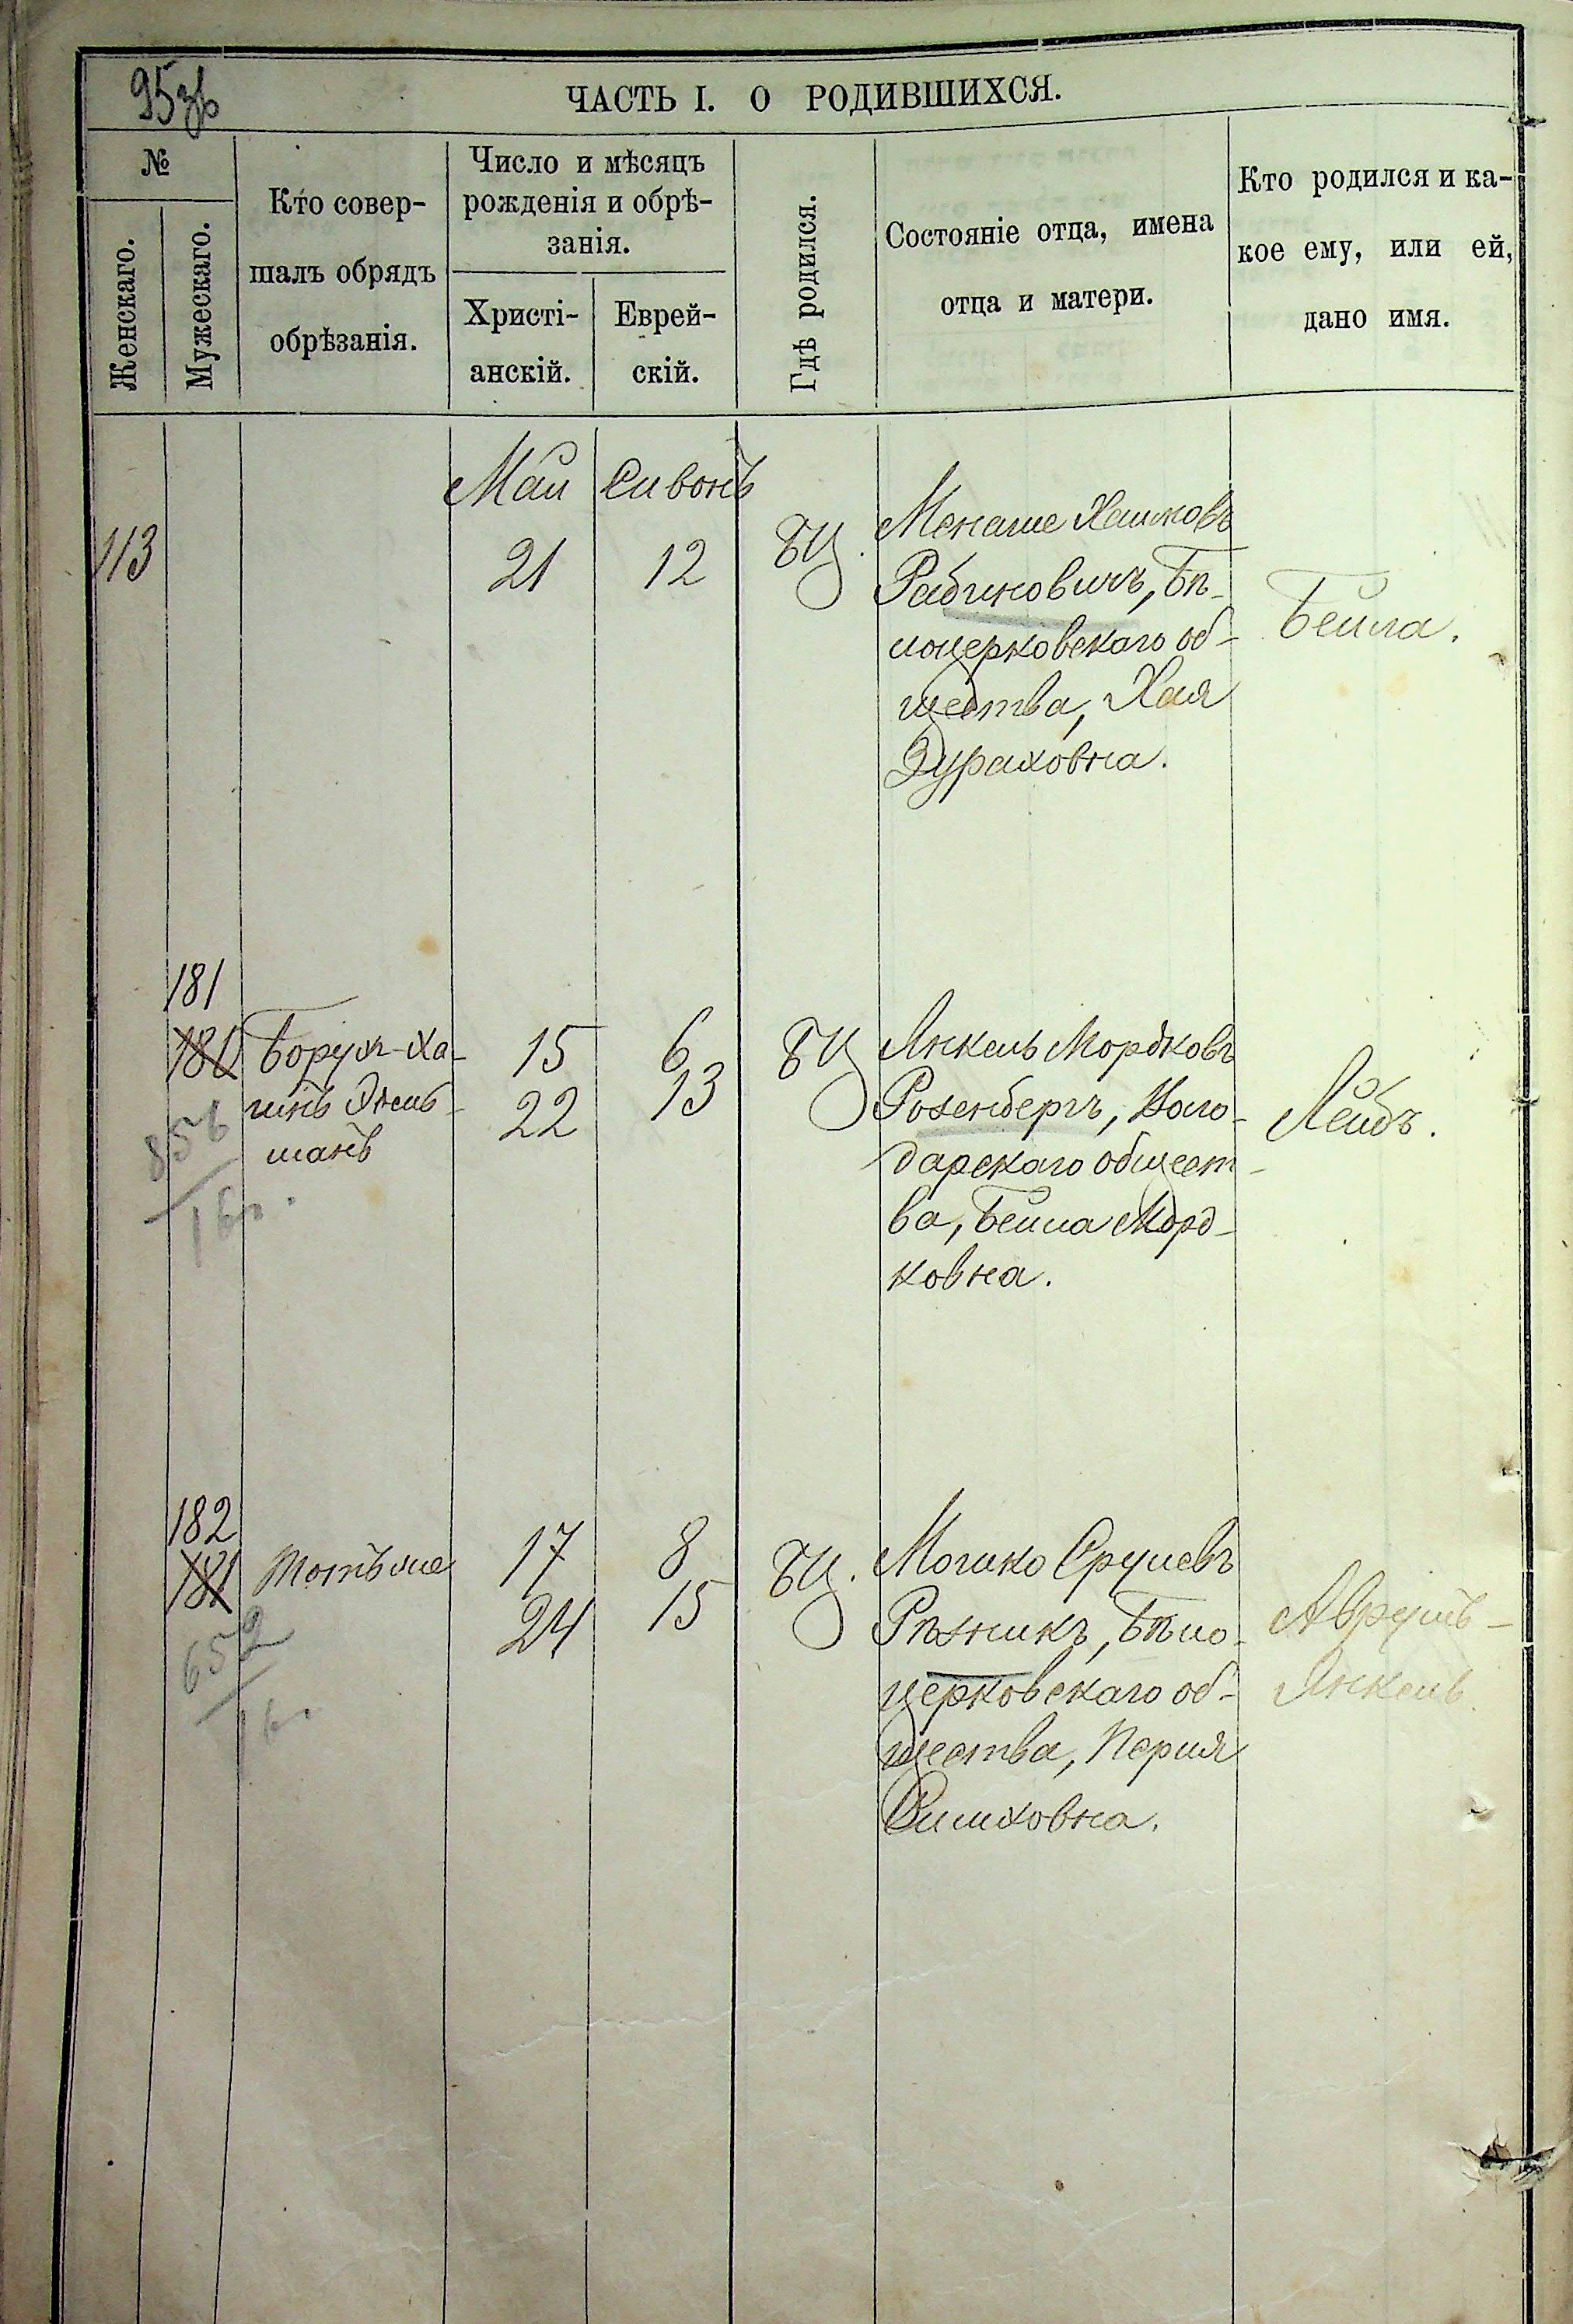 95зв
ЧАСТЬ I. О РОДИВШИХСЯ.
№
Женскаго.
Мужескаго.
Кто совер-
шалъ обрядъ
обрѣзанія.
Число и мѣсяцъ
рожденія и обрѣ-
занія.
Христі-
анскій.
Еврей-
скій.
Гдѣ родился.
Состояніе отца, имена
отца и матери.
Кто родился и ка-
кое ему, или ей,
дано имя.
Май Сивонъ
113
21
12
БЦ.
Менаше Хаимовъ
Рабиновичъ, Бѣ-
лоцерковскаго об-
щества, Хая
Дураховна.
Бейла.
181
180
Борух-Ха-
имъ
шанъ
15
22
6
13
БЦ
Янкель Мордковъ
Розенбергъ, Воло-
дарскаго общест-
ва, Бейла Морд-
ковна.
Лейбъ.
856
182
181
17
24
8
15
БЦ.
Мошко Срулевъ
Рѣзникъ, Бѣло-
церковскаго об-
щества, Перля
Симховна.
Аврумъ-
Янкель.
652